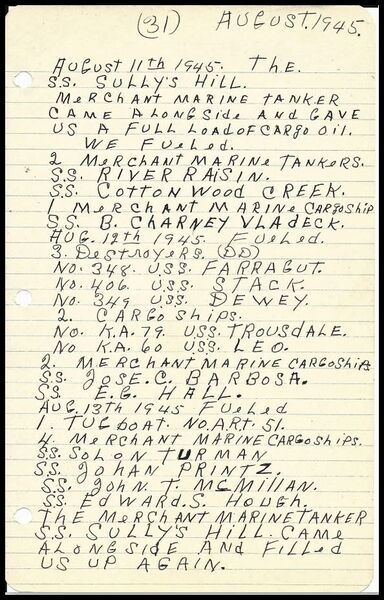 (31) AUGUST.1945.
AUGUST 11th 1945. The.
S.S. SULLY'S HILL.
MERCHANT MARINE TANKER
CAME ALONGSIDE AND GAVE
US A FULL LOAD OF CARGO OIL.
WE FUELED.
2 MERCHANT MARINE TANKERS.
S.S. RIVER RAISIN.
S.S. COTTON WOOD CREEK.
1. MERCHANT MARINE CARGOSHIP
S.S. B. CHARNEY VLADECK.
AUG. 12th 1945. FUELED.
3. DESTROYERS. (DD)
NO. 348. U.S.S. FARRAGUT.
NO. 406. U.S.S. STACK.
NO. 349 U.S.S. DEWEY.
2. CARGO SHIPS.
NO. K.A. 79. U.S.S. TROUSDALE.
NO K.A. 60 U.S.S. LEO.
2. MERCHANT MARINE CARGOSHIPS
S.S. JOSE.C. BARBOSA.
S.S. E.G. HALL.
AUG. 13th 1945 FUELED
1. TUGBOAT. NO.A.R.T. 51.
4. MERCHANT MARINE CARGOSHIPS.
S.S. SOLON TURMAN
S.S. JOHAN PRINTZ.
S.S. JOHN. T. MCMILIAN.
S.S. EDWARD.S. HOUGH.
THE MERCHANT MARINE TANKER
S.S. SULLY'S HILL. CAME
ALONGSIDE AND FILLED
US UP AGAIN.